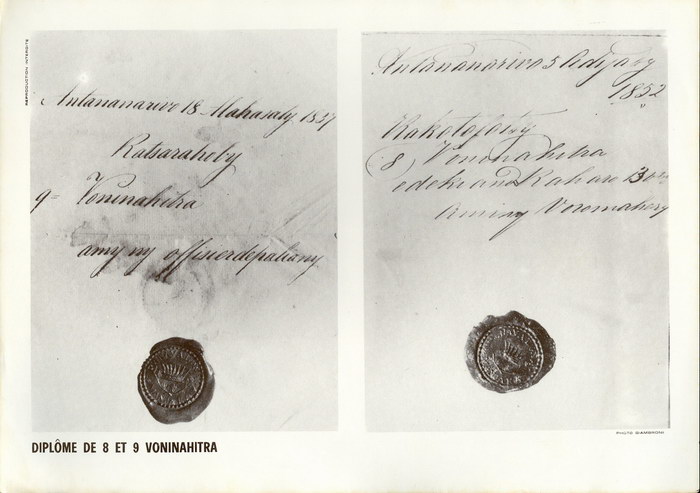 REPRODUCTION INTERDITE
Antananarivo 18 Alahasaty 1857
Ratsarahoby
9= Voninahitra
amy ny offisierdepaliany
Antananarivo 5 Adijady
1852
Rakotofotsy
(8) Voninahitra
Aminy Voromahery
PHOTO GIAMBRONI
DIPLÔME DE 8 ET 9 VONINAHITRA